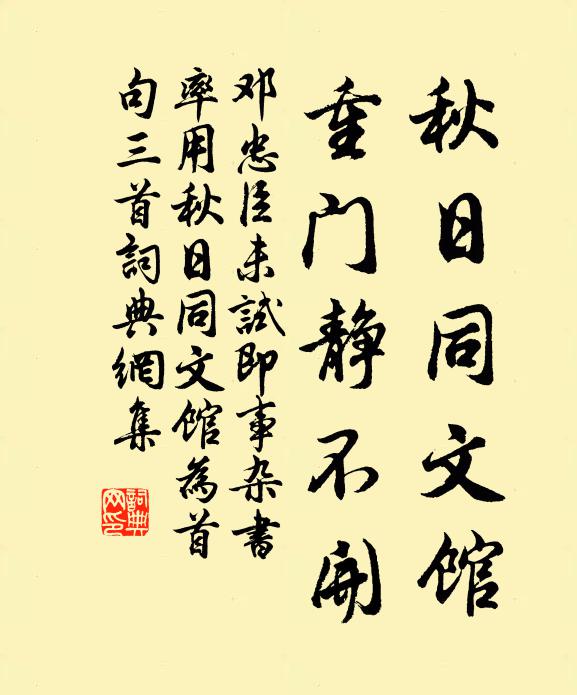 秋日同文馆
重门静不開
邓忠臣未試即事杂書
率用秋日同文馆為首
句三首詞典網集
詞典
网印